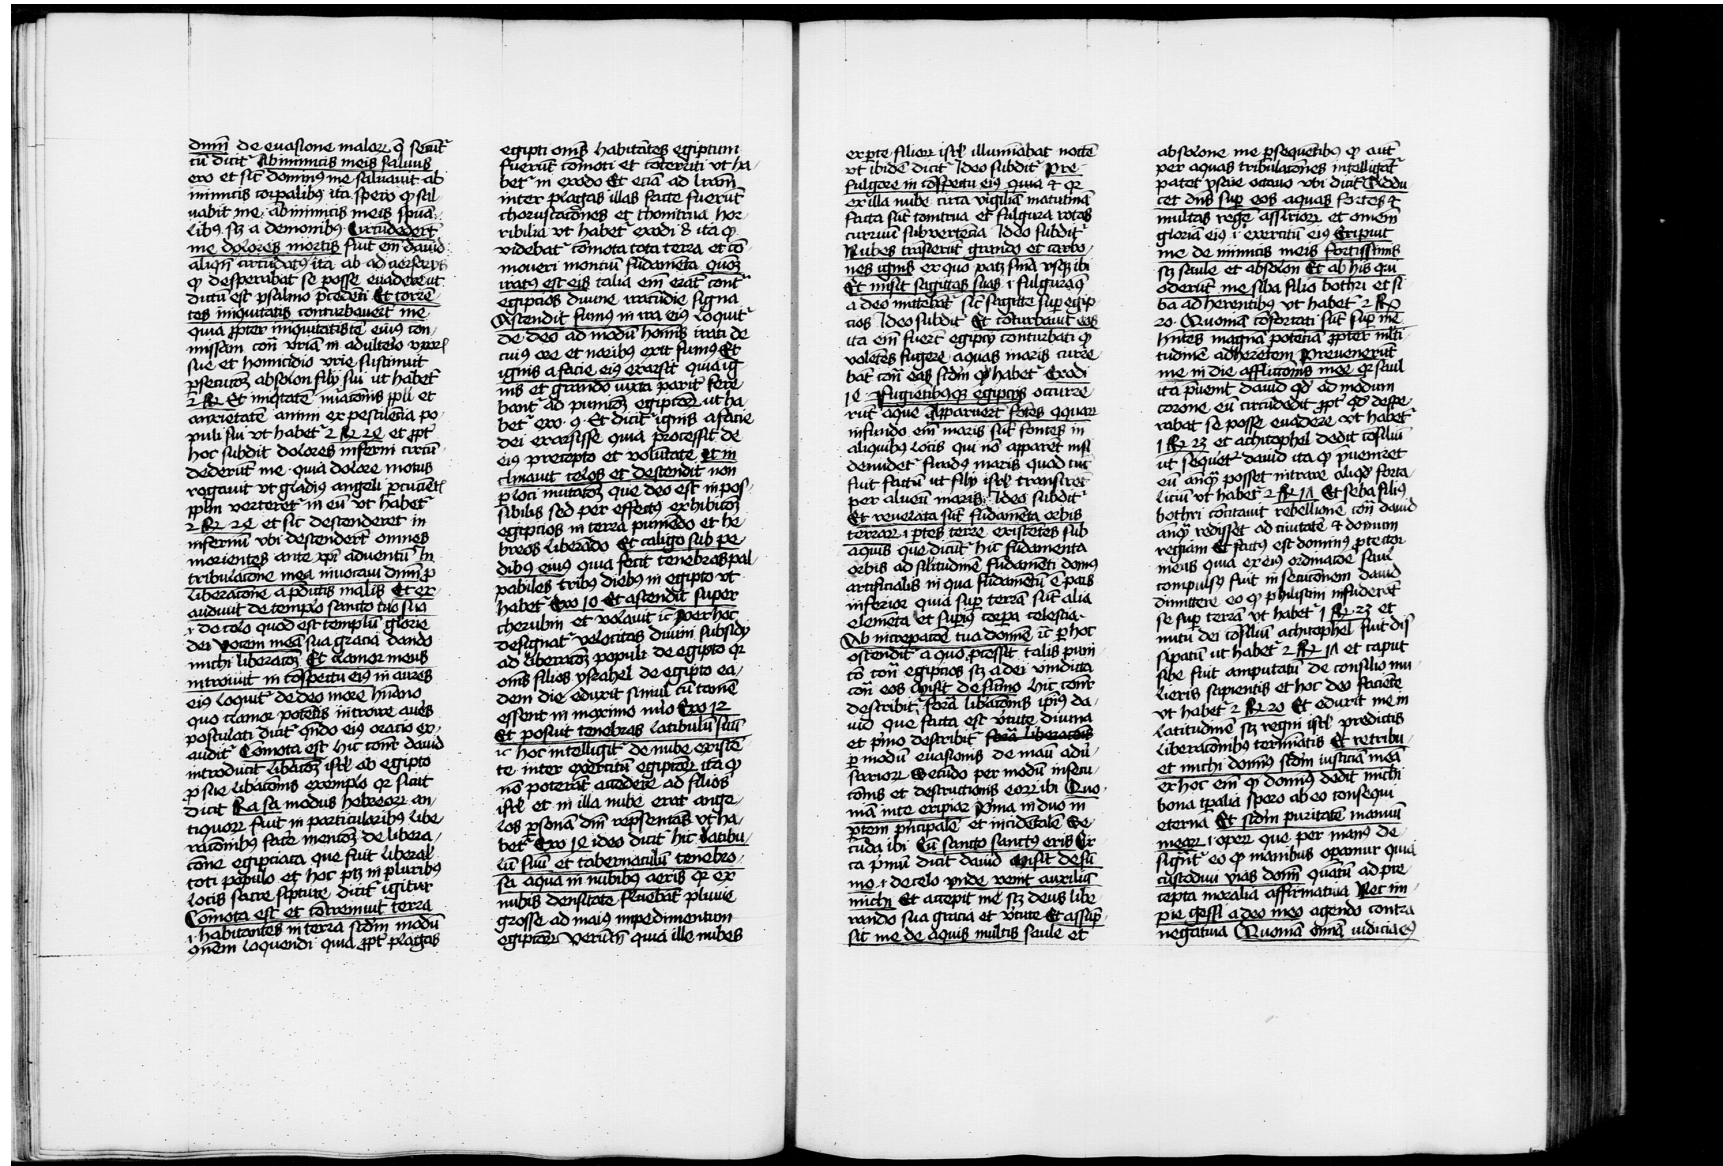 dnm̄ de euasione malor̄ q̄ secut᷑
tū dicit᷑ Ab inimicis meis saluus
ero et sic̄ dominus me saluauit ab
inimicis corp̄alibꝫ ita spero qꝫ sal
uabit me ab inimicis meis sp̄ua
libꝫ sꝫ a demonibꝫ Circūdedert̄
me dolores mortis fuit em̄ dauid
aliqn̄ circūdatꝰ ita ab aduersarijs
ꝙ desperabat se posse euadere ut
dictū est psalmo p̄cedēti Et torrē
tes iniquitatis conturbauert̄ me
quia ꝓpter iniquitatis eius com
missam cont̄ vriam in adulterio vxoris
sue et homicidio vrie sustinuit
ꝑsecutōꝫ absolon filij sui ut habet᷑
2 R et
anxietatē animi ex pestilētia po
puli sui vt habet᷑ 2 R 24 et ꝓpt᷑
hoc subdit dolores inferni circū
dederūt me quia dolore motus
rogauit vt gladius angeli ꝑcuciēt᷑
ip̄lm verteret᷑ in eū vt habet᷑
2 R 24 et sic descenderet in
infernū vbi descenderūt omnes
morientes ante xp̄i aduentū In
tribulatōne mea inuocaui dnm̄ ꝓ
liberatōne a p̄dictis malis Et ex
audiuit de templo sancto suo
i de celo quod est templū glorie
dei Vocem meā sua gracia dando
michi liberatōꝫ Et clamor meus
introiuit in cōspectu eiꝰ in aures
eiꝰ loquit᷑ de deo more hūano
quo clamor petētis introire aures
postulati dicit᷑ qn̄do eiꝰ oracio ex
audit᷑ Cōmota est hic cont᷑ dauid
introducit libatōꝫ isrl̄ ab egipto
ꝓ sue libatōnis exemplo qꝛ sicut
dicit Ra sa modus hebreoꝝ an
tiquoꝝ fuit in particularibꝫ libe
ratōnibꝫ facē mentōꝫ de libera
tōne egipciaca que fuit liberal᷑
toti populo et hoc ptꝫ in pluribꝫ
locis sacre scpture dicit igitur
Cōmota est et cōtremuit terra
i habitantes in terra scdm̄ modū
loquendi quia ꝓpt᷑ plagas
egipti om̄s habitātes egiptum
fuerūt cōmoti et cōterriti vt ha
bet᷑ in exodo Et eciā ad lr̄am
inter plagas illas facte fuerūt
choruscatōnes et thonitrua hor
ribilia vt habet᷑ exodi 8 ita ꝙ
videbat᷑ cōmota tota terra et cō
moueri montiū fūdamēta quoꝫ
iratꝰ est eis talia em̄ erāt cont᷑
egipcios diuine iracūdie signa
Ascendit fumꝰ in ira eiꝰ loquit᷑
de deo ad modū hoīnis irati de
cuiꝰ ore et naribꝫ exit fumꝰ Et
ignis a facie eiꝰ exarsit quia ig
nis et grando iuxta parit᷑ fere
bant᷑ ad punitōꝫ egiptioꝝ ut ha
bet᷑ exo 9 Et dicit᷑ ignis a facie
dei exarsisse quia processit de
eiꝰ precepto et volūtate Et in
clinauit celos et descendit non
ꝑ loci mutatōꝫ que deo est inpos
sibilis sed per effectꝰ exhibitōꝫ
egipcios in terra puniēdo et he
breos liberādo Et caligo sub pe
dibꝫ eius quia fecit tenebras pal
pabiles tribꝫ diebꝫ in egipto vt
habet᷑ Exo 10 Et ascendit super
cherubin et volauit ic̄ per hoc
designat᷑ velocitas diuini subsidij
ad liberatōꝫ populi de egipto qꝛ
om̄s filios ysrahel de egipto ea
dem die eduxit simul cū tamē
essent in maximo nūo Exo 12
Et posuit tenebras latibulū suū
ic̄ hoc intelligit᷑ de nube existē
te inter exercitū egiptioꝝ ita ꝙ
nō poterāt accedere ad filios
isrl̄ et in illa nube erat ange
los ꝑsonā dni rep̄sentās vt ha
bet᷑ Exo 14 ideo dicit᷑ hic latibu
lū suū et tabernaculū tenebro
sa aqua in nubibꝫ aeris qꝛ ex
nubis densitate fluebāt pluuie
grosse ad maiꝰ impedimentum
egiptioꝝ verūtn̄ quia ille nubes
ex ꝑte filioꝝ isrl̄ illuminabāt noctē
vt ibidē dicit᷑ Ideo subdit᷑ Pre
fulgore in cōspectu eiꝰ quia
ex illa nube circa vigiliā matutinā
facta sūt tonitrua et fulgura rotas
curruū subuertētia Ideo subdit᷑
Nubes trāsierūt grando et carbo
nes ignis ex quo patꝫ sn̄ia vsqꝫ ibi
Et misit sagittas suas i fulguraqꝫ
a deo mittebāt᷑ sic̄ sagitte sup egip
cios Ideo subdit᷑ Et cōturbauit eos
ita em̄ fuert̄ egipcij conturbati ꝙ
volētes fugere aquas maris curre
bāt cont̄ eas scdm̄ ꝙ habet᷑ Exodi
14 fugiētibꝫqꝫ egipcijs occurre
rūt aque Apparuert̄ fontes aquaꝝ
infundo em̄ maris sūt fontes in
aliquibꝫ locis qui nō apparēt nisi
denudet᷑ fundꝰ maris quod tūc
fuit factū ut filij isrl̄ transiret᷑
per alueū maris Ideo subdit᷑
Et reuelata sūt fūdamēta orbis
terraꝝ i ꝑtes terre existētes sub
aquis que dicūt᷑ hic fundamenta
orbis ad silitudinē fundamēti domꝰ
artificialis in qua fūdamētū ē pars
inferior quia sup terrā sūt alia
elemēta et supiꝰ corpa celestia
Ab increpatōe tua domine ic̄ ꝑ hoc
ostendit᷑ a quo ꝓcessit talis puni
tō cont̄ egipcios sꝫ a dei vindicta
cont̄ eos Misit de sūmo hic cont᷑
describit᷑ forā libatōnis ip̄iꝰ da
uid que facta est v᷑tute diuina
et p̄mo describit forā liberatōnis
ꝑ modū euasionis de manū adu
sarioꝝ Secūdo per modū insecu
tōnis et destructionis eoꝝ ibi Quo
niā in te eripiar Prima in duo in
ꝑtem p̄ncipalē et incidētalē Se
cūda ibi Cū sancto sanctꝰ eris Cir
ca p̄mū dicit dauid Misit de sū
mo i de celo vnde venit auxiliū
michi Et accepit me sꝫ deus libe
rando sua gracia et v᷑tute Et assūp
sit me de aquis multis saule et
absolone me ꝑsequētibꝫ ꝙ aut̄
per aquas tribulatōnes intelligāt᷑
patet ysaie octauo vbi dicit᷑ Addu
cet dn̄s sup eos aquas fortes et
multas regē assirioꝝ et omēm
gloriā eiꝰ i exercitū eiꝰ Eripuit
me de inimicis meis fortissimis
sꝫ saule et absolon Et ab his qui
oderūt me siba filio bothri et si
bi adherentibꝫ vt habet᷑ 2 R
20 Quoniā cōfortati sūt sup me
hn̄tes magnā potētiā ꝓpter multi
tudinē adherētem Preuenerūt
me in die afflictōnis mee qꝛ saul
ita p̄uenit dauid qd̄ ad modum
corone eū circūdedit ꝓpt᷑ qd̄ despe
rabat se posse euadere vt habet᷑
1 R 23 et achitophel dedit cōsiliū
ut seqꝰet᷑ dauid ita ꝙ p̄ueniret
eū anqꝫ posset intrare aliqd̄ forta
liciū vt habet᷑ 2 R 17 Et seba filiꝰ
bothri cōcitauit rebellionē cont̄ dauid
anqꝫ redisset ad ciuitatē et domum
regiam Et factꝰ est dominꝰ ꝓtector
meus quia ex eiꝰ ordinatōe saul
compulsꝰ fuit in secutōnem dauid
dimittere eo ꝙ philistini infuderāt
se sup terrā vt habet᷑ 1 R 23 et
nutu dei cōsiliū achitophel fuit dis
sipatū ut habet᷑ 2 R 17 et caput
sibe fuit amputatū de consilio mu
lieris sapientis et hoc deo faciēte
vt habet᷑ 2 R 20 Et eduxit me in
latitudinē sꝫ regni isrl̄ predictis
liberatōnibꝫ terminatis Et retribu
et michi dominꝰ scdm̄ iusticiā meā
ex hoc em̄ ꝙ dominꝰ dedit michi
bona tꝑalia spero ab eo consequi
eterna Et scdm̄ puritatē manuū
meaꝝ i oper̄ que per manꝰ de
signāt᷑ eo ꝙ manibus opamur quia
custodiui vias domī quātū ad pre
cepta moralia affirmatiua Nec im
pie gessi a deo meo agendo contra
negatiua Quoniā om̄ia iudicia eiꝰ